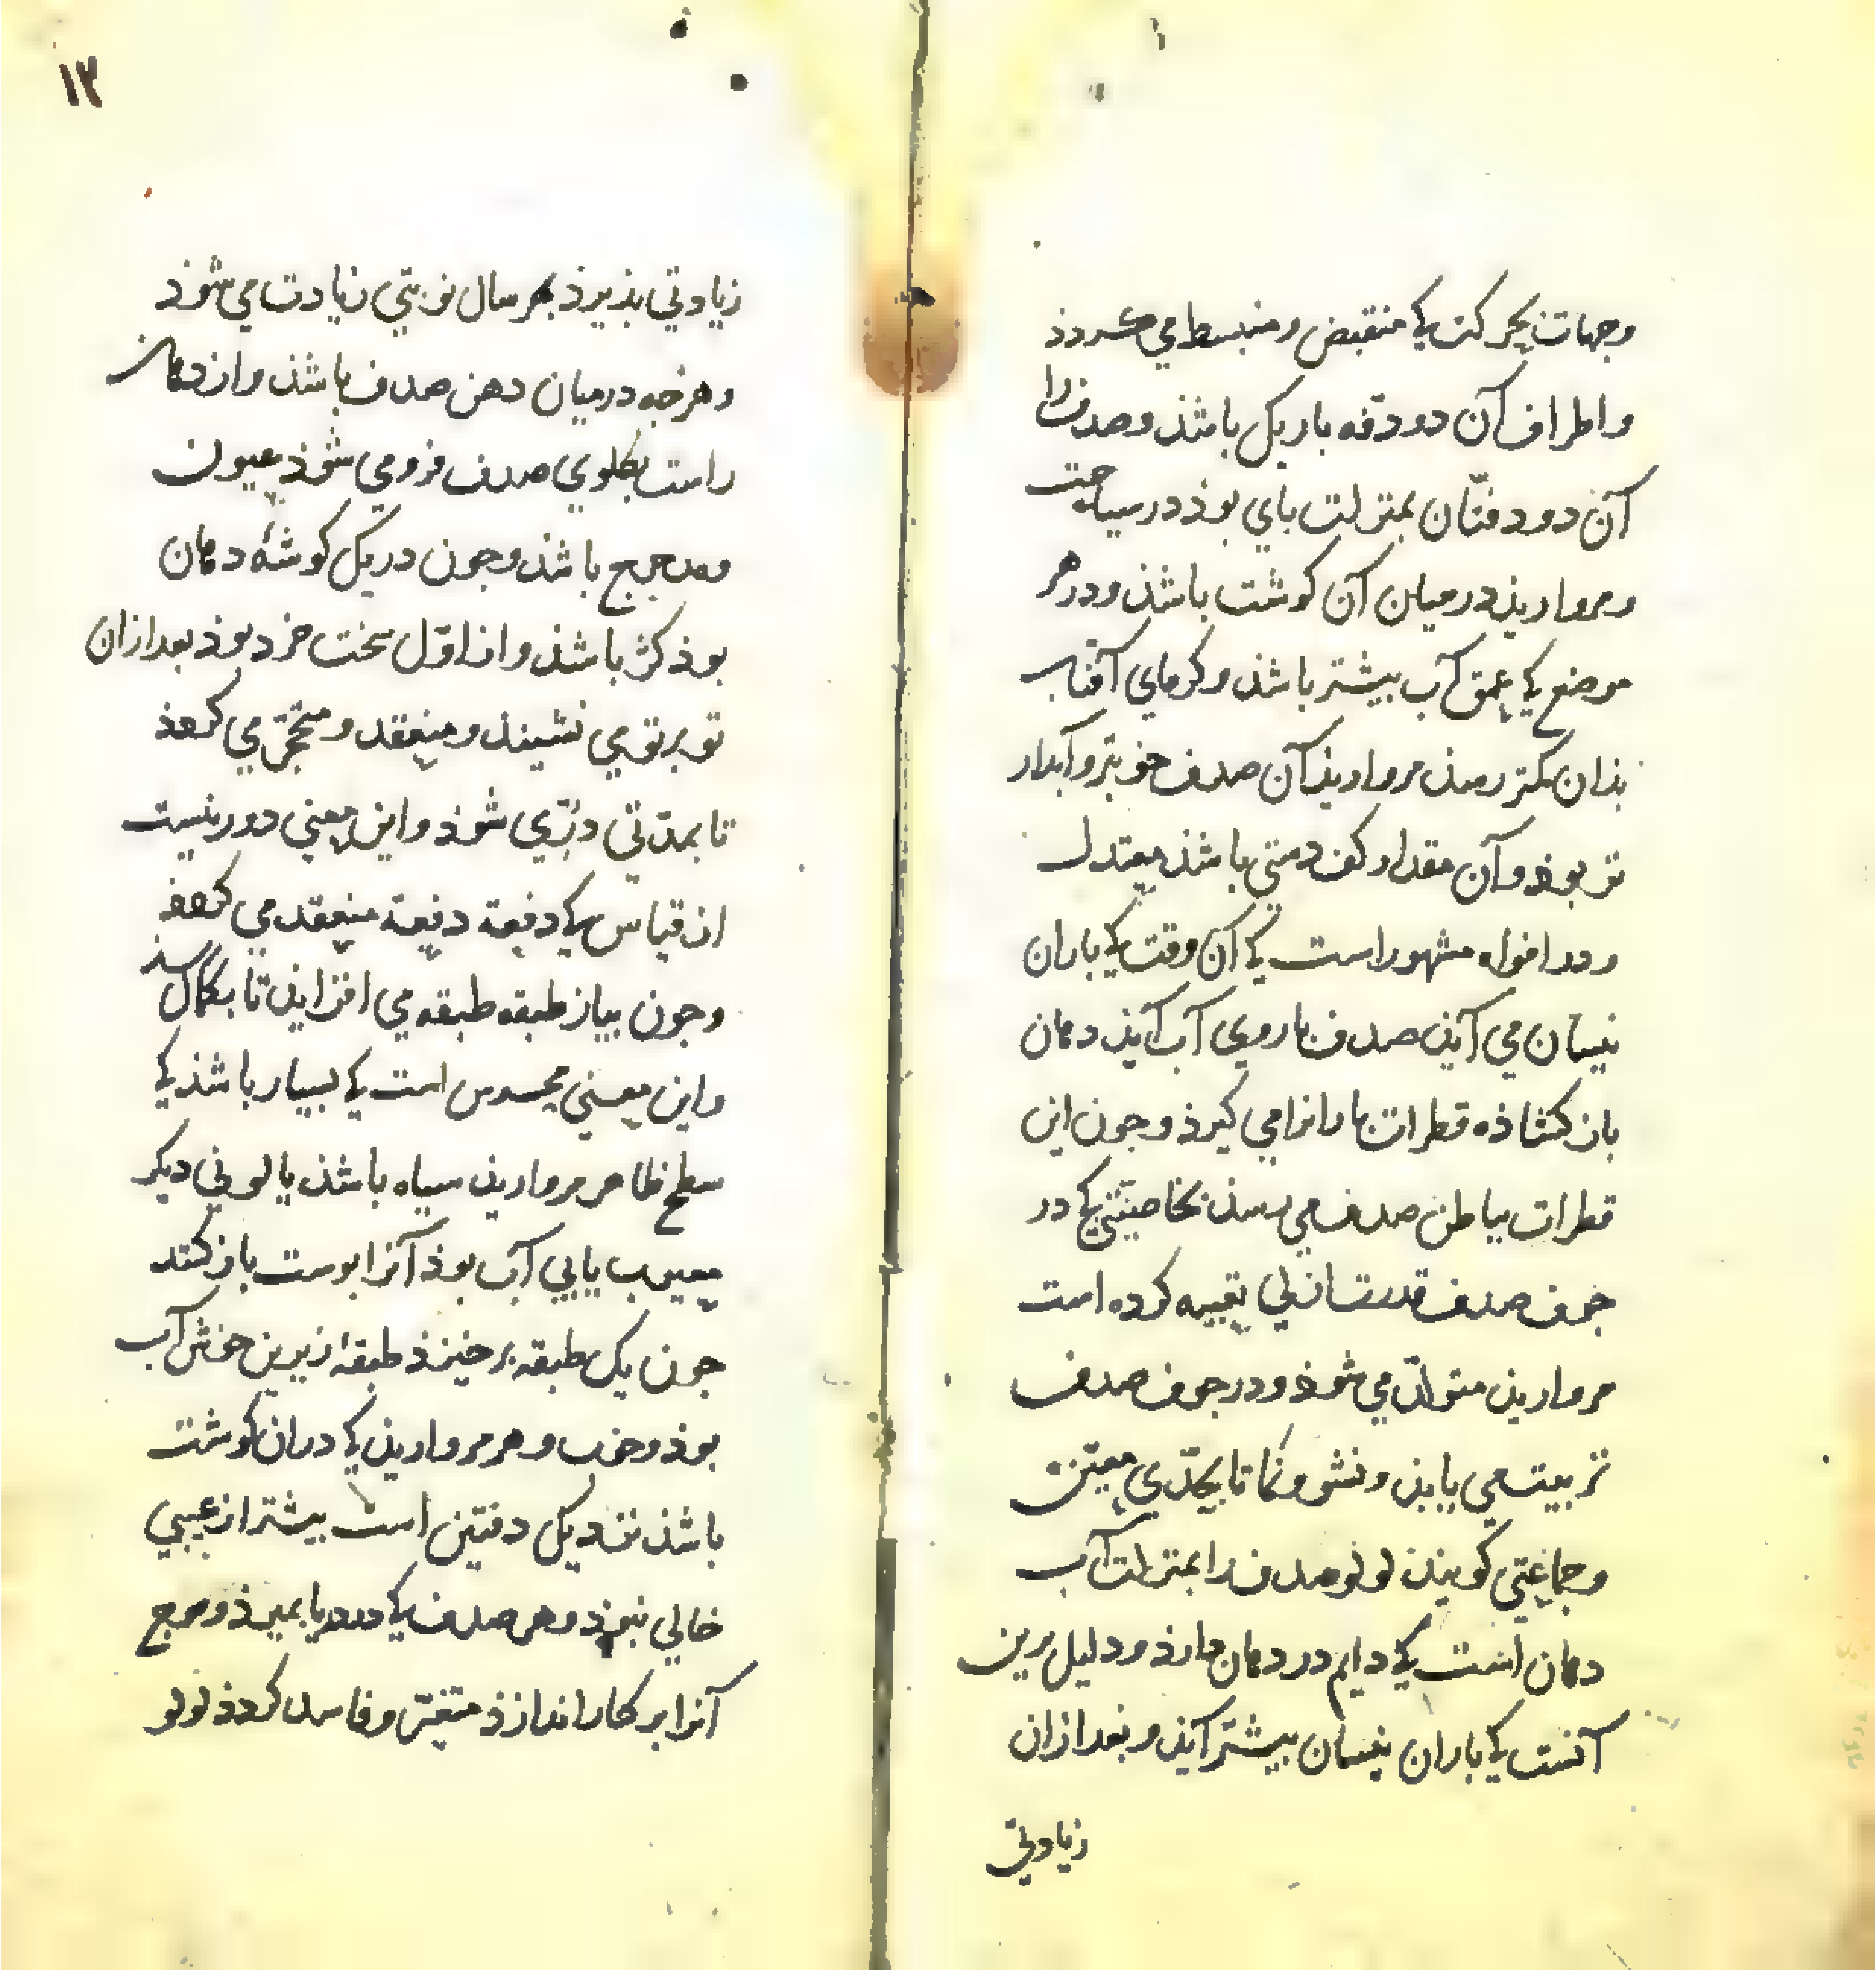 وجهات بحرکت کی منقبض و منبسط می کردذ
و اطراف آن دو دفه باریک باشذ و صدف را
آن دو دفتان بمنزلت بای بوذ در سیاحت
و مرواریذ در میان آن کوشت باشذ و در هر
موضع کی عمق آب بیشتر باشذ و کرمای آفتاب
بذان کمتر رسذ مرواریذ آن صدف خوبتر و آبدار
تر بوذ و آن مقدار کف دستی باشذ معتدل
و در افواه مشهور است کی آن وقت کی باران
نیسان می آیذ صدف با روی آب آیذ دهان
باز کشاذه قطرات باران را می کیرذ و جون این
قطرات بباطن صدف می رسذ بخاصیتی کی در
جوف صدف قدرت ازلی تعبیه کرده است
مرواریذ متولد می شوذ و در جوف صدف
تربیت می یابذ و نشو و نما تا بحدی معین
و جماعتی کویند لولو صدف را بمنزلت آب
دهان است کی دایم در دهان دارذ و دلیل برین
آنست کی باران نیسان بیشتر آیذ و بعد ازان
زیادتی
۱۳
زیادتی بذیرذ هر سال نوبتی زیادت می شوذ
و هرجه در میان دهن صدف باشذ و از دهان
راست بکلوی صدف فرو می شوذ عیون
و مدحرج باشذ و جون در یک کوشهٔ دهان
بوذ کژ باشذ و از اول سخت خرد بوذ بعد ازان
تو برتو می نشیند و منعقد و متحجر می کردذ
تا بمدتی دری شوذ و این معنی دور نیست
از قیاس کی دفعة دفعة منعقد می کردذ
و جون بیاز طبقه طبقه می افزایذ تا بکمال رسذ
و این معنی محسوس است کی بسیار باشذ کی
سطح ظاهر مرواریذ سیاه باشذ یا لونی دیکر
معیوب یا بی آب بوذ آنرا بوست باز کنند
جون یک طبقه برخیزذ طبقهٔ زیرین خوش آب
بوذ و خوب و هر مرواریذ کی دران کوشت
باشذ نزدیک دفتین است بیشتر از عیبی
خالی نبوذ و هر صدف کی در دریا بمیرذ و موج
آنرا بر کنار اندازذ متغیر و فاسد کردذ لولو